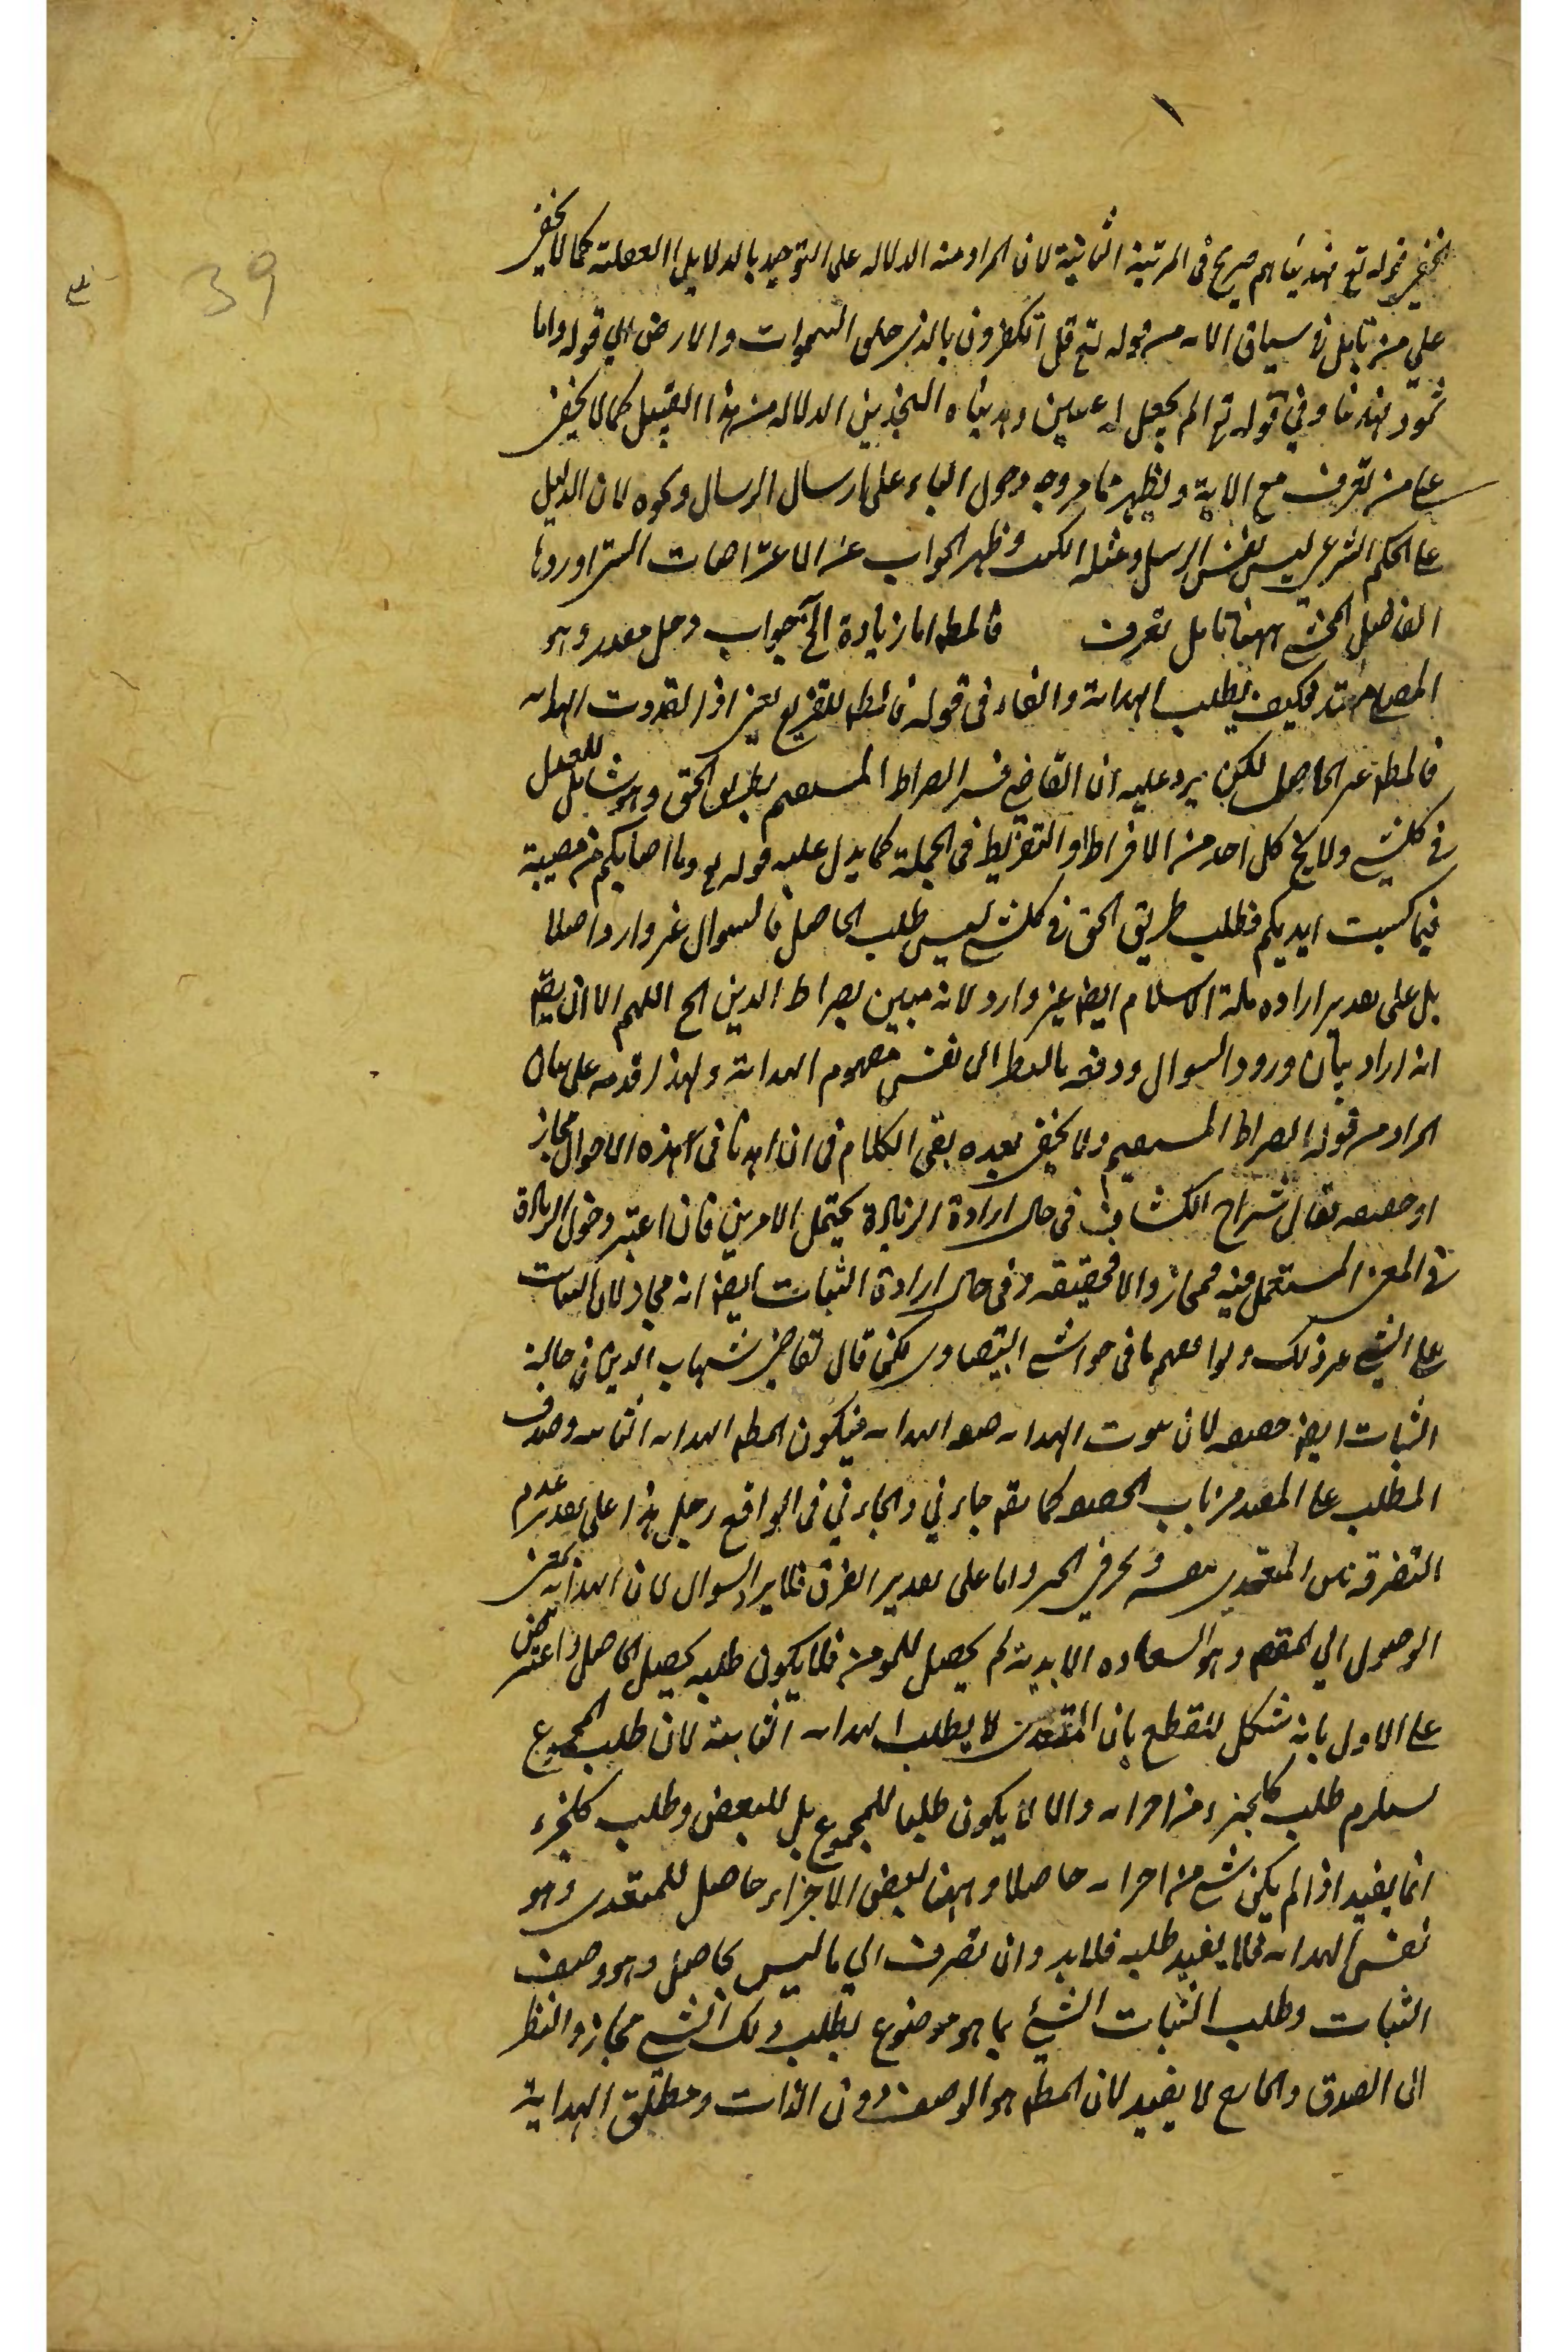 39
الخفي قوله تع فهديناهم صريح فى المرتبة الثانية لان المراد منه الدلاله على التوحيد بالدلايل العقلية كما لا يخفى
على من تامل فى سياق الايه من قوله تع قل أئنكم لتكفرون بالذى خلق السموات والارض الى قوله واما
ثمود فهديناهم وفي قوله تع الم نجعل له عينين وهديناه النجدين الدلاله من هذا القبيل كما لا يخفى
على من تعرف مع الاية ويظهر مما مر وجه دخول الباء على ارسال الرسل ونحوه لان الدليل
على الحكم الشرعى ليس نفس الرسل ومثله الكتب وظهر الجواب عن الاعتراضات التى اوردها
الفاضل المحشى ههنا تامل تعرف فالمط اما زيادة الخ جواب دخل مقدر وهو
المصلى مهتد فكيف يطلب الهداية والفاء فى قوله فالمط للتفريع يعنى اذا تعددت الهدايه
فالمط غير الحاصل لكن يرد عليه ان القاضى فسر الصراط المستقيم بطريق الحق وهو شامل للعمل
فى كلشى ولا يخ كل احد من الافراط او التفريط فى الجملة كما يدل عليه قوله تع وما اصابكم من مصيبة
فبما كسبت ايديكم فطلب طريق الحق فى كلشى ليس طلب الحاصل فالسوال غير وارد اصلا
بل على تقدير اراده ملة الاسلام ايض غير وارد لانه مبين بصراط الذين الخ اللهم الا ان يق
انه اراد بيان ورود السوال ودفعه بالنظر الى نفس مفهوم الهداية ولهذا قدمه على بيان
المراد من قوله الصراط المستقيم ولا يخفى بعده بقى الكلام فى ان اهدنا فى هذه الاحوال مجاز
او حقيقه فقال شراح الكشاف فى حال ارادة الزيادة يحتمل الامرين فان اعتبر دخول الزيادة
فى المعنى المستعمل فيه فمجاز والا فحقيقه وفى حال ارادة الثبات ايض انه مجاز لان الثبات
على الشى غير ذلك ووافقهم ما فى حواشى البيضاوى لكن قال القاضى شهاب الدين فى حالة
الثبات ايض حقيقه لان ثبوت الهدايه صفه الهدايه فيكون المط الهدايه الثابته وصرف
المطلب على المقيد من باب الحقيقه كما يق جاءنى والجاءنى فى الواقع رجل هذا على تقدير عدم
التفرقه بين المتعدى بنفسه وبحرف الجر واما على تقدير الفرق فلا يرد السوال لان الهدايه بمعنى
الوصول الى المقصد وهو السعاده الابدية لم يحصل للمومن فلا يكون طلبه تحصيل الحاصل واعترض
على الاول بانه مشكل للقطع بان المهتدى لا يطلب الهدايه الثابته لان طلب المجموع
يستلزم طلب كلجزء من اجزايه والا لا يكون طلبا للمجموع بل للبعض وطلب كلجزء
انما يفيد اذا لم يكن شى من اجزايه حاصلا وههنا بعض الاجزاء حاصل للمهتدى وهو
نفس الهدايه فلا يفيد طلبه فلابد وان تصرف الى ما ليس بحاصل وهو وصف
الثبات وطلب الثبات الشئ بما هو موضوع لطلب ذلك الشى مجاز والنظر
الى الصدق والجامع لا يفيد لان المط هو الوصف دون الذات ومطلق الهداية